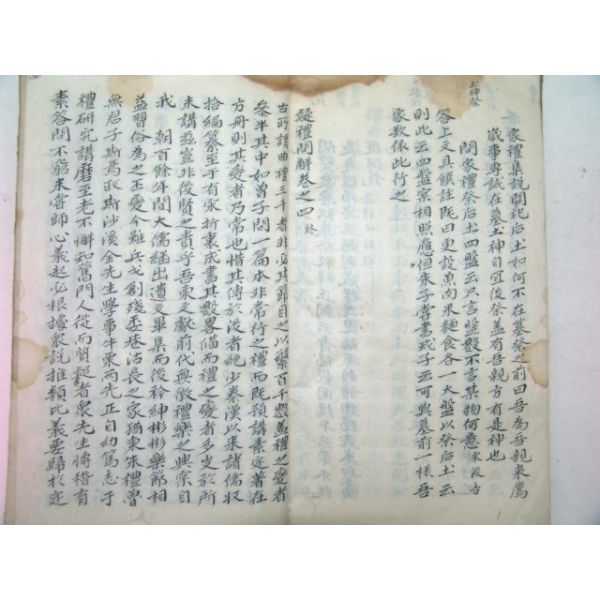 家禮集說問祀后土如何不在墓祭之前曰吾為吾親來薦
歲事專誠在墓土神自宜後祭盖有吾親方有是神也
土神祭
問家禮祭后土四盤云只言盤數不言其物何意
答上文具饌註既曰更設魚肉米麵食各一大盤以祭后土云
則此云四盤寀相照應但朱子嘗書戒子云可與墓前一樣吾
家教依此行之
疑禮問解卷之四 終
古所謂曲禮三千者非必其節目之以繫百千數盖禮之變者
參半其中如曾子問一篇本非常行之禮而既預講素定著在
方冊則其變者乃常也惜其傳於後者絶少秦漢以來諸儒収
拾編纂至于有宋折衷成書其數畧備而禮之變者多史於所
未講益豈非後賢之責乎吾東文獻前代無徵禮樂之興粜自
我 朝百餘年間大儒継出遺文畢集而後衿紳彬彬樂節相
益習俗為之丕變今雖兵戈創殘丕基沾喪之家猶東朱禮魯
無君子斯焉取斯沙溪金先生學事牛栗两先正自幼篤志于
禮研究講劘至老不懈知舊門人從而問疑者衆先生博稽有
素答問不窮未嘗師心義起必根據衆說推類比義要歸於定